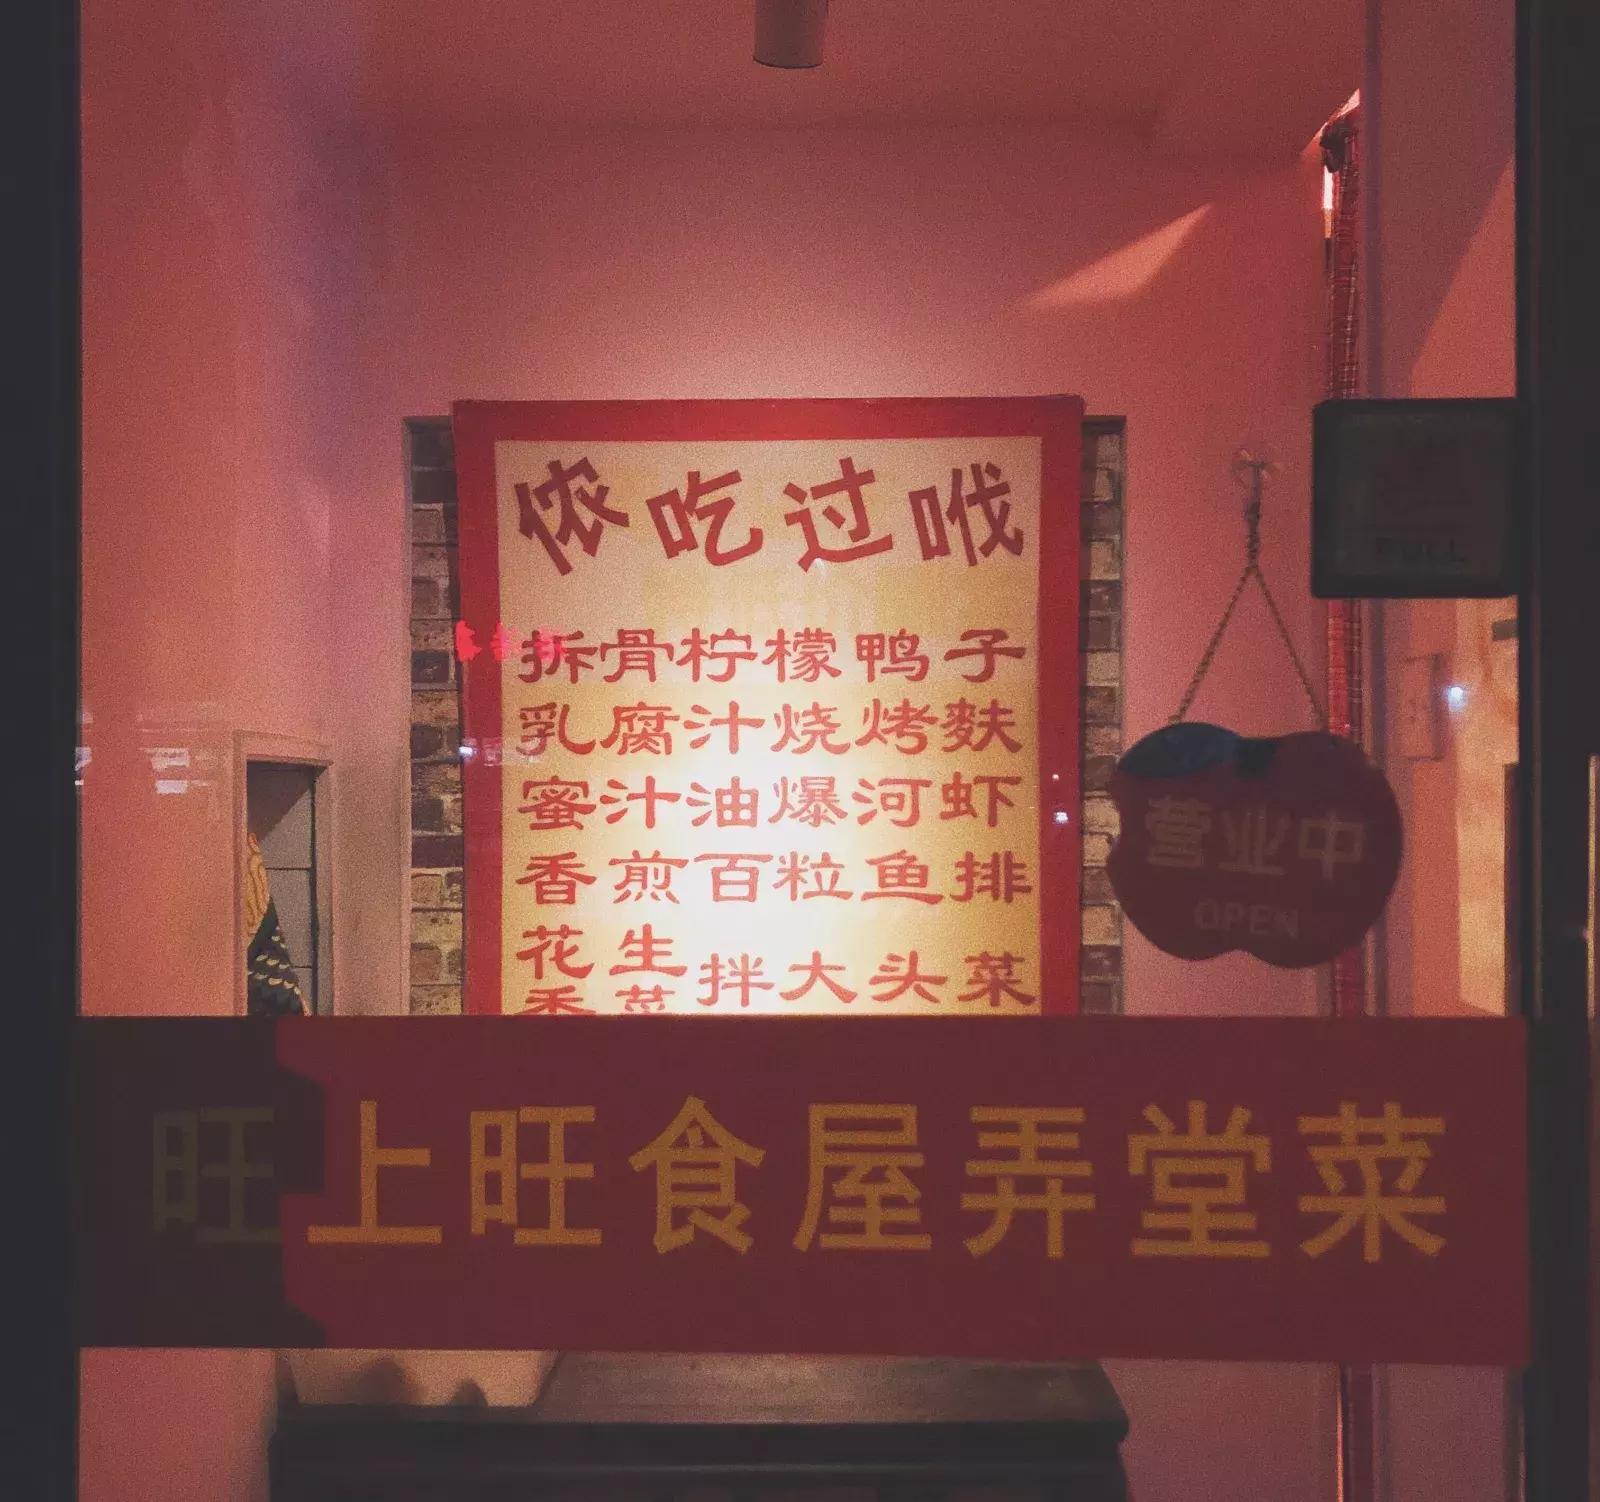 侬吃过咴
拆骨柠檬鸭子
乳腐汁烧烤麸
蜜汁油爆河虾
香煎百粒鱼排
花生
香菜
拌大头菜
PULL
营业中
OPEN
旺上旺食屋弄堂菜